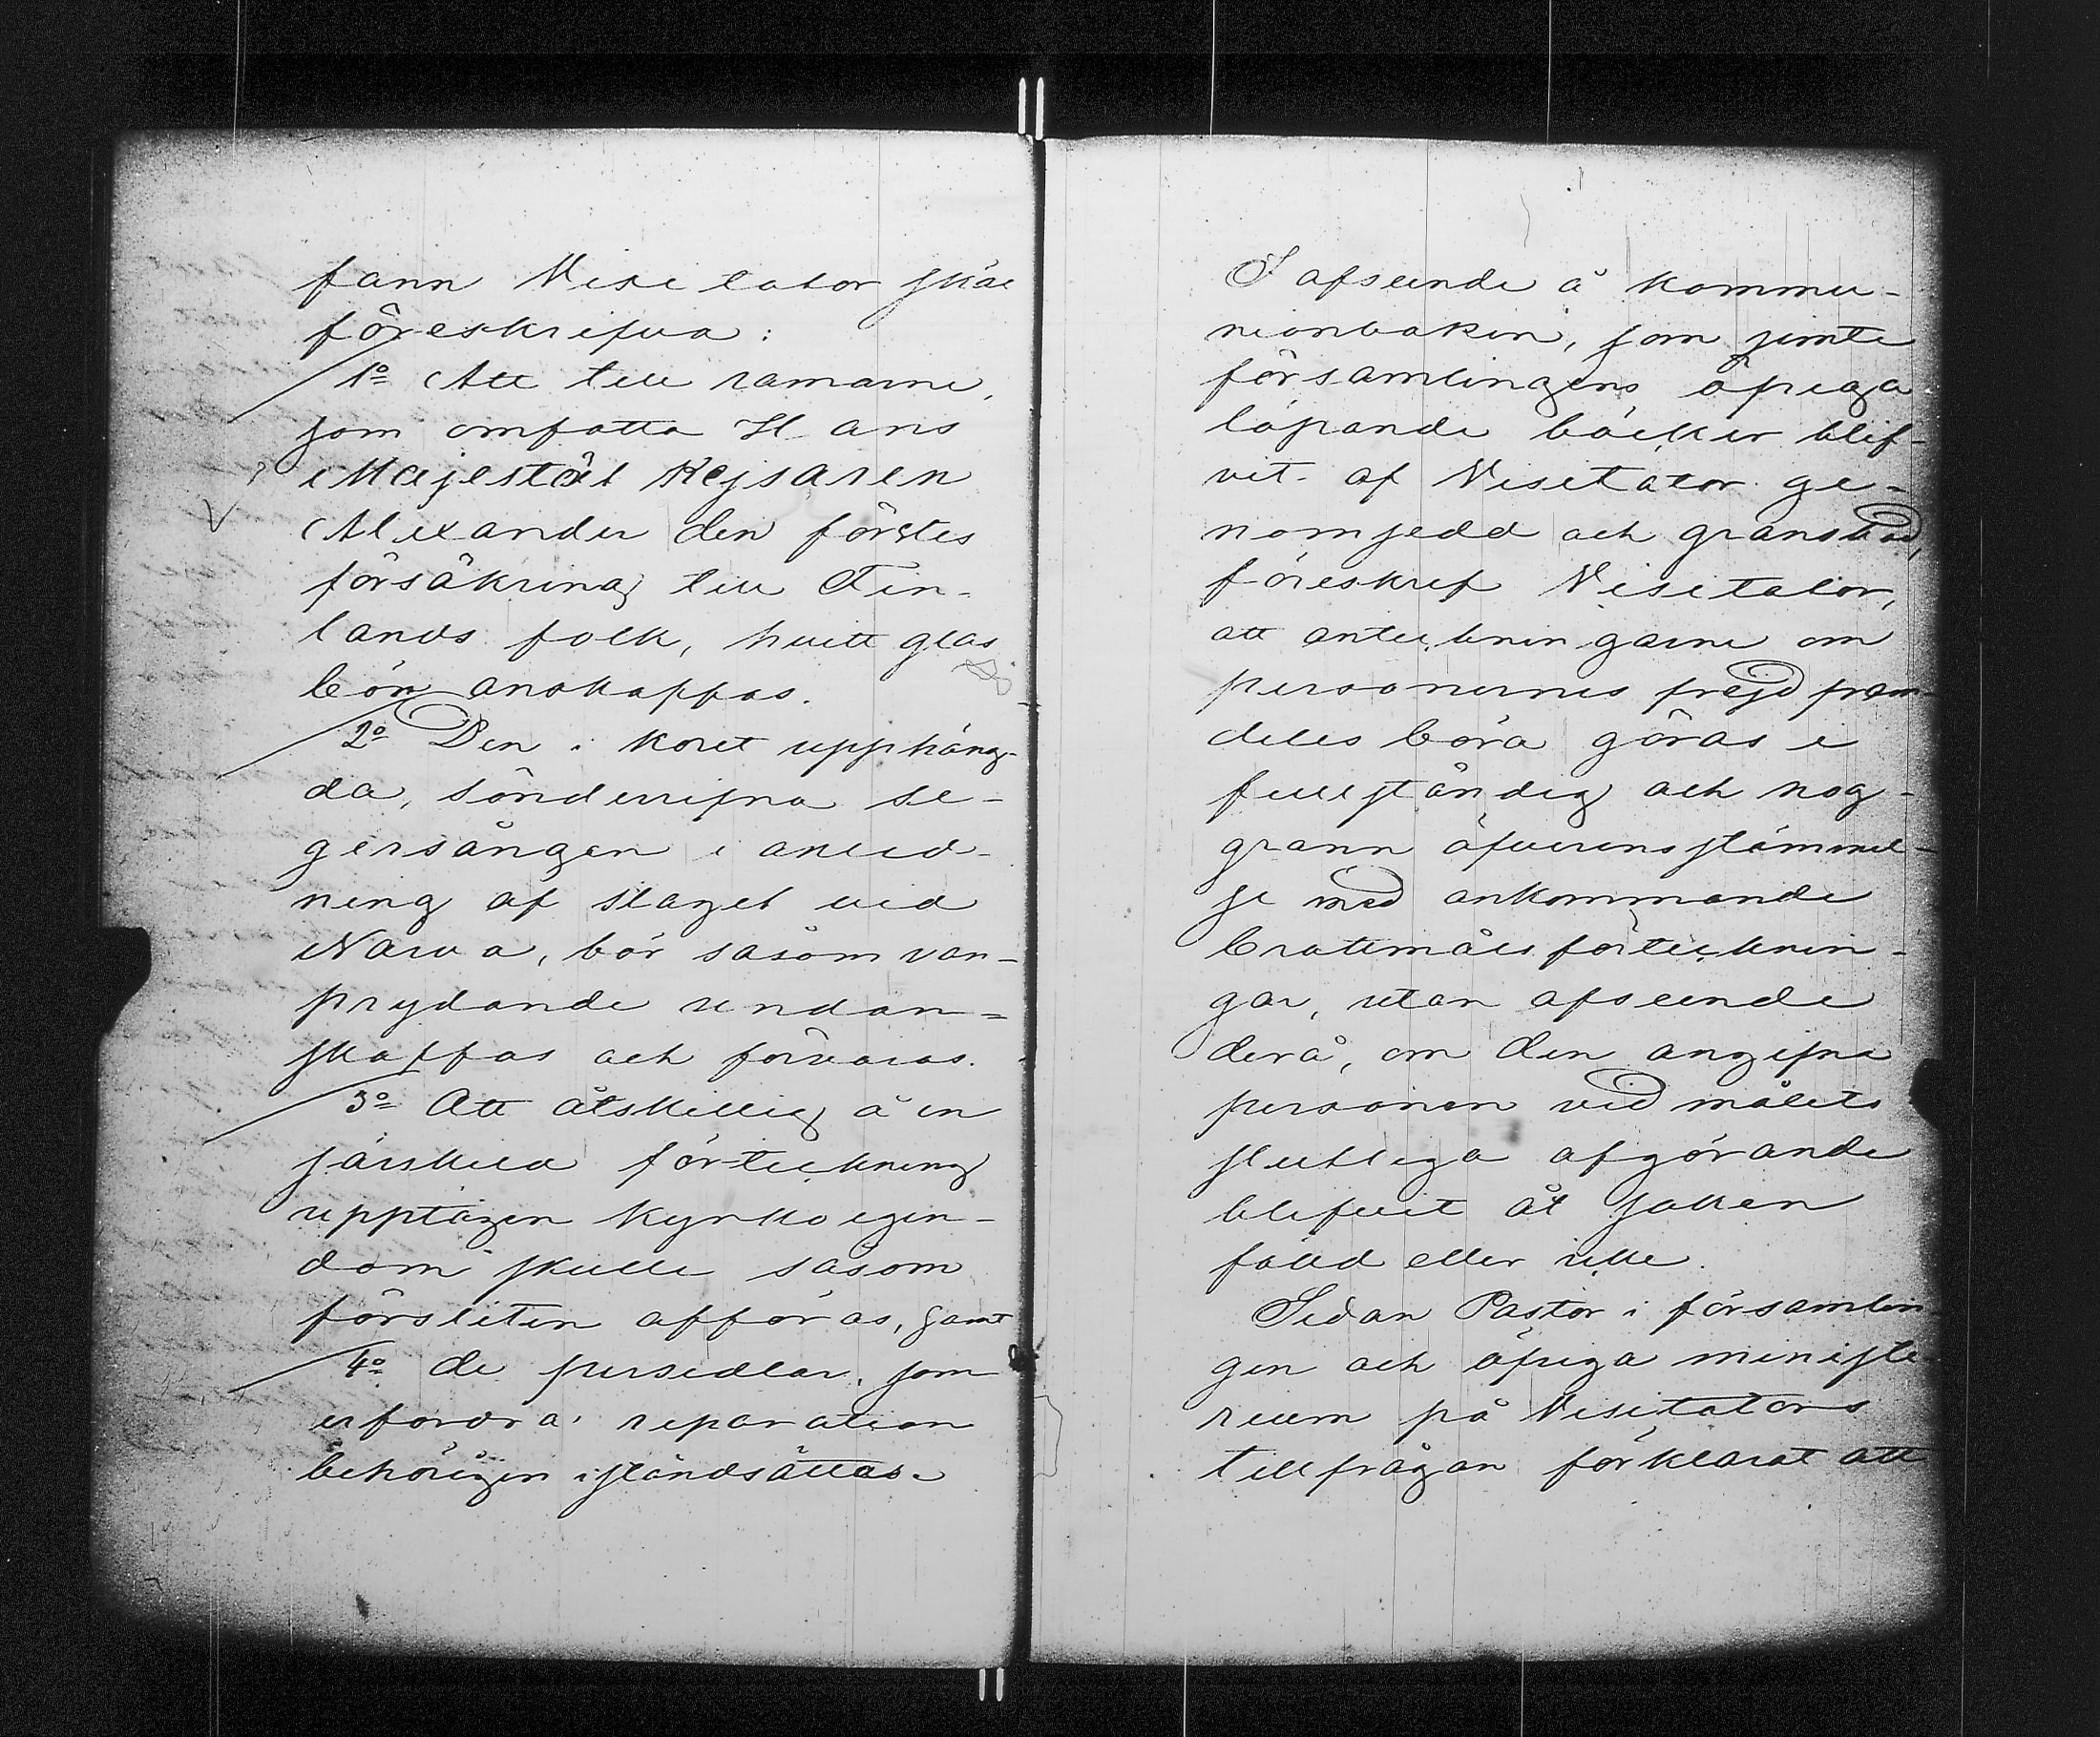 fann Visitator skäl
föreskrifva:
1o Att till ramarne,
som omfatta Hans
Majestät Kejsaren
Alexander den förstes
försäkring till Fin-
lands folk, hvitt glas
bör anskaffas.
2o Den i koret upphäng-
da, sönderrifna se-
gersången i anled-
ning af slaget vid
Narva, bör såsom van-
prydande undan-
skaffas och förvaras.
3o Att åtskillig å en
särskild förteckning
upptagen kyrkoegen-
dom skulle såsom
försliten afföras, samt
4o de persedlar, som
erfordra reparation
behörigen iståndsättas.
I afseende å kommu-
nionboken, som jemte
församlingens öfriga
löpande böcker blif-
vit af Visitator ge-
nomsedd och granskad,
föreskref Visitator,
att anteckningarne om
personernes frejd fram-
deles böra göras i
fullständig och nog-
grann öfverensstämmel-
se med ankommande
brottmålsförtecknin-
gar, utan afseende
derå, om den angifne
personen vid målets
slutliga afgörande
blifvit åt saken
fälld eller icke.
Sedan Pastor i församlin-
gen och öfriga ministe-
rium på Visitators
tillfrågan förklarat att